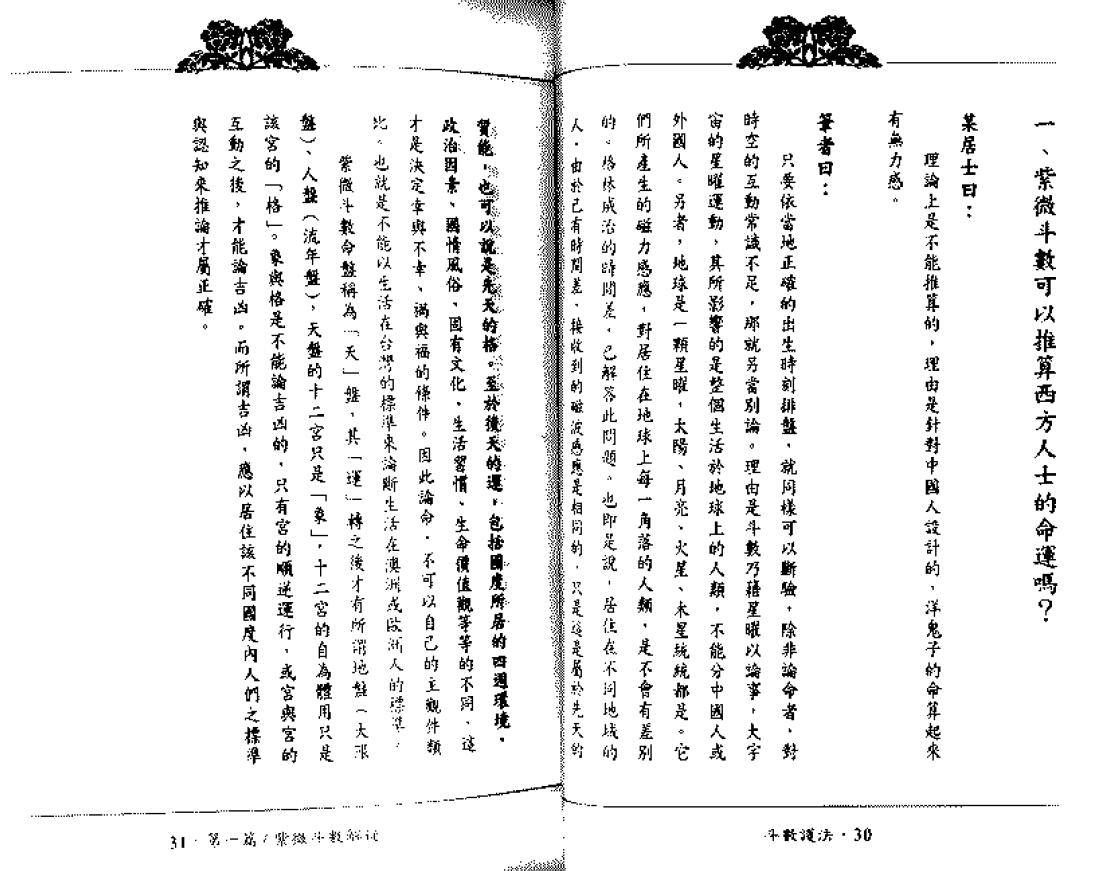 一、紫微斗數可以推算西方人士的命運嗎？
某居士曰：
理論上是不能推算的，理由是針對中國人設計的，洋鬼子的命算起來
有無力感。
筆者曰：
只要依當地正確的出生時刻排盤，就同樣可以斷驗，除非論命者，對
時空的互動常識不足，那就另當別論。理由是斗數乃藉星曜以論事，大宇
宙的星曜運動，其所影響的是整個生活於地球上的人類，不能分中國人或
外國人。另者，地球是一顆星曜，太陽、月亮、火星、木星統統都是。它
們所產生的磁力感應，對居住在地球上每一角落的人類，是不會有差別
的。格林威治的時間差，已解答此問題。也即是說，居住在不同地域的
人，由於已有時間差，接收到的磁波感應是相同的，只是這是屬於先天的
質能，也可以說是先天的格。至於後天的運，包括國度所居的四週環境，
政治因素、國情風俗、固有文化、生活習慣、生命價值觀等等的不同，這
才是決定幸與不幸、禍與福的條件。因此論命，不可以自己的主觀件類
比。也就是不能以生活在台灣的標準來論斷生活在澳洲或歐洲人的標準。
紫微斗數命盤稱為「天」盤，其「運」轉之後才有所謂地盤（大限
盤）、人盤（流年盤），天盤的十二宮只是「象」，十二宮的自為體用只是
該宮的「格」。象與格是不能論吉凶的，只有宮的順逆運行，或宮與宮的
互動之後，才能論吉凶。而所謂吉凶，應以居住該不同國度內人們之標準
與認知來推論才屬正確。
斗數護法・30
31・第一篇／紫微斗數解说